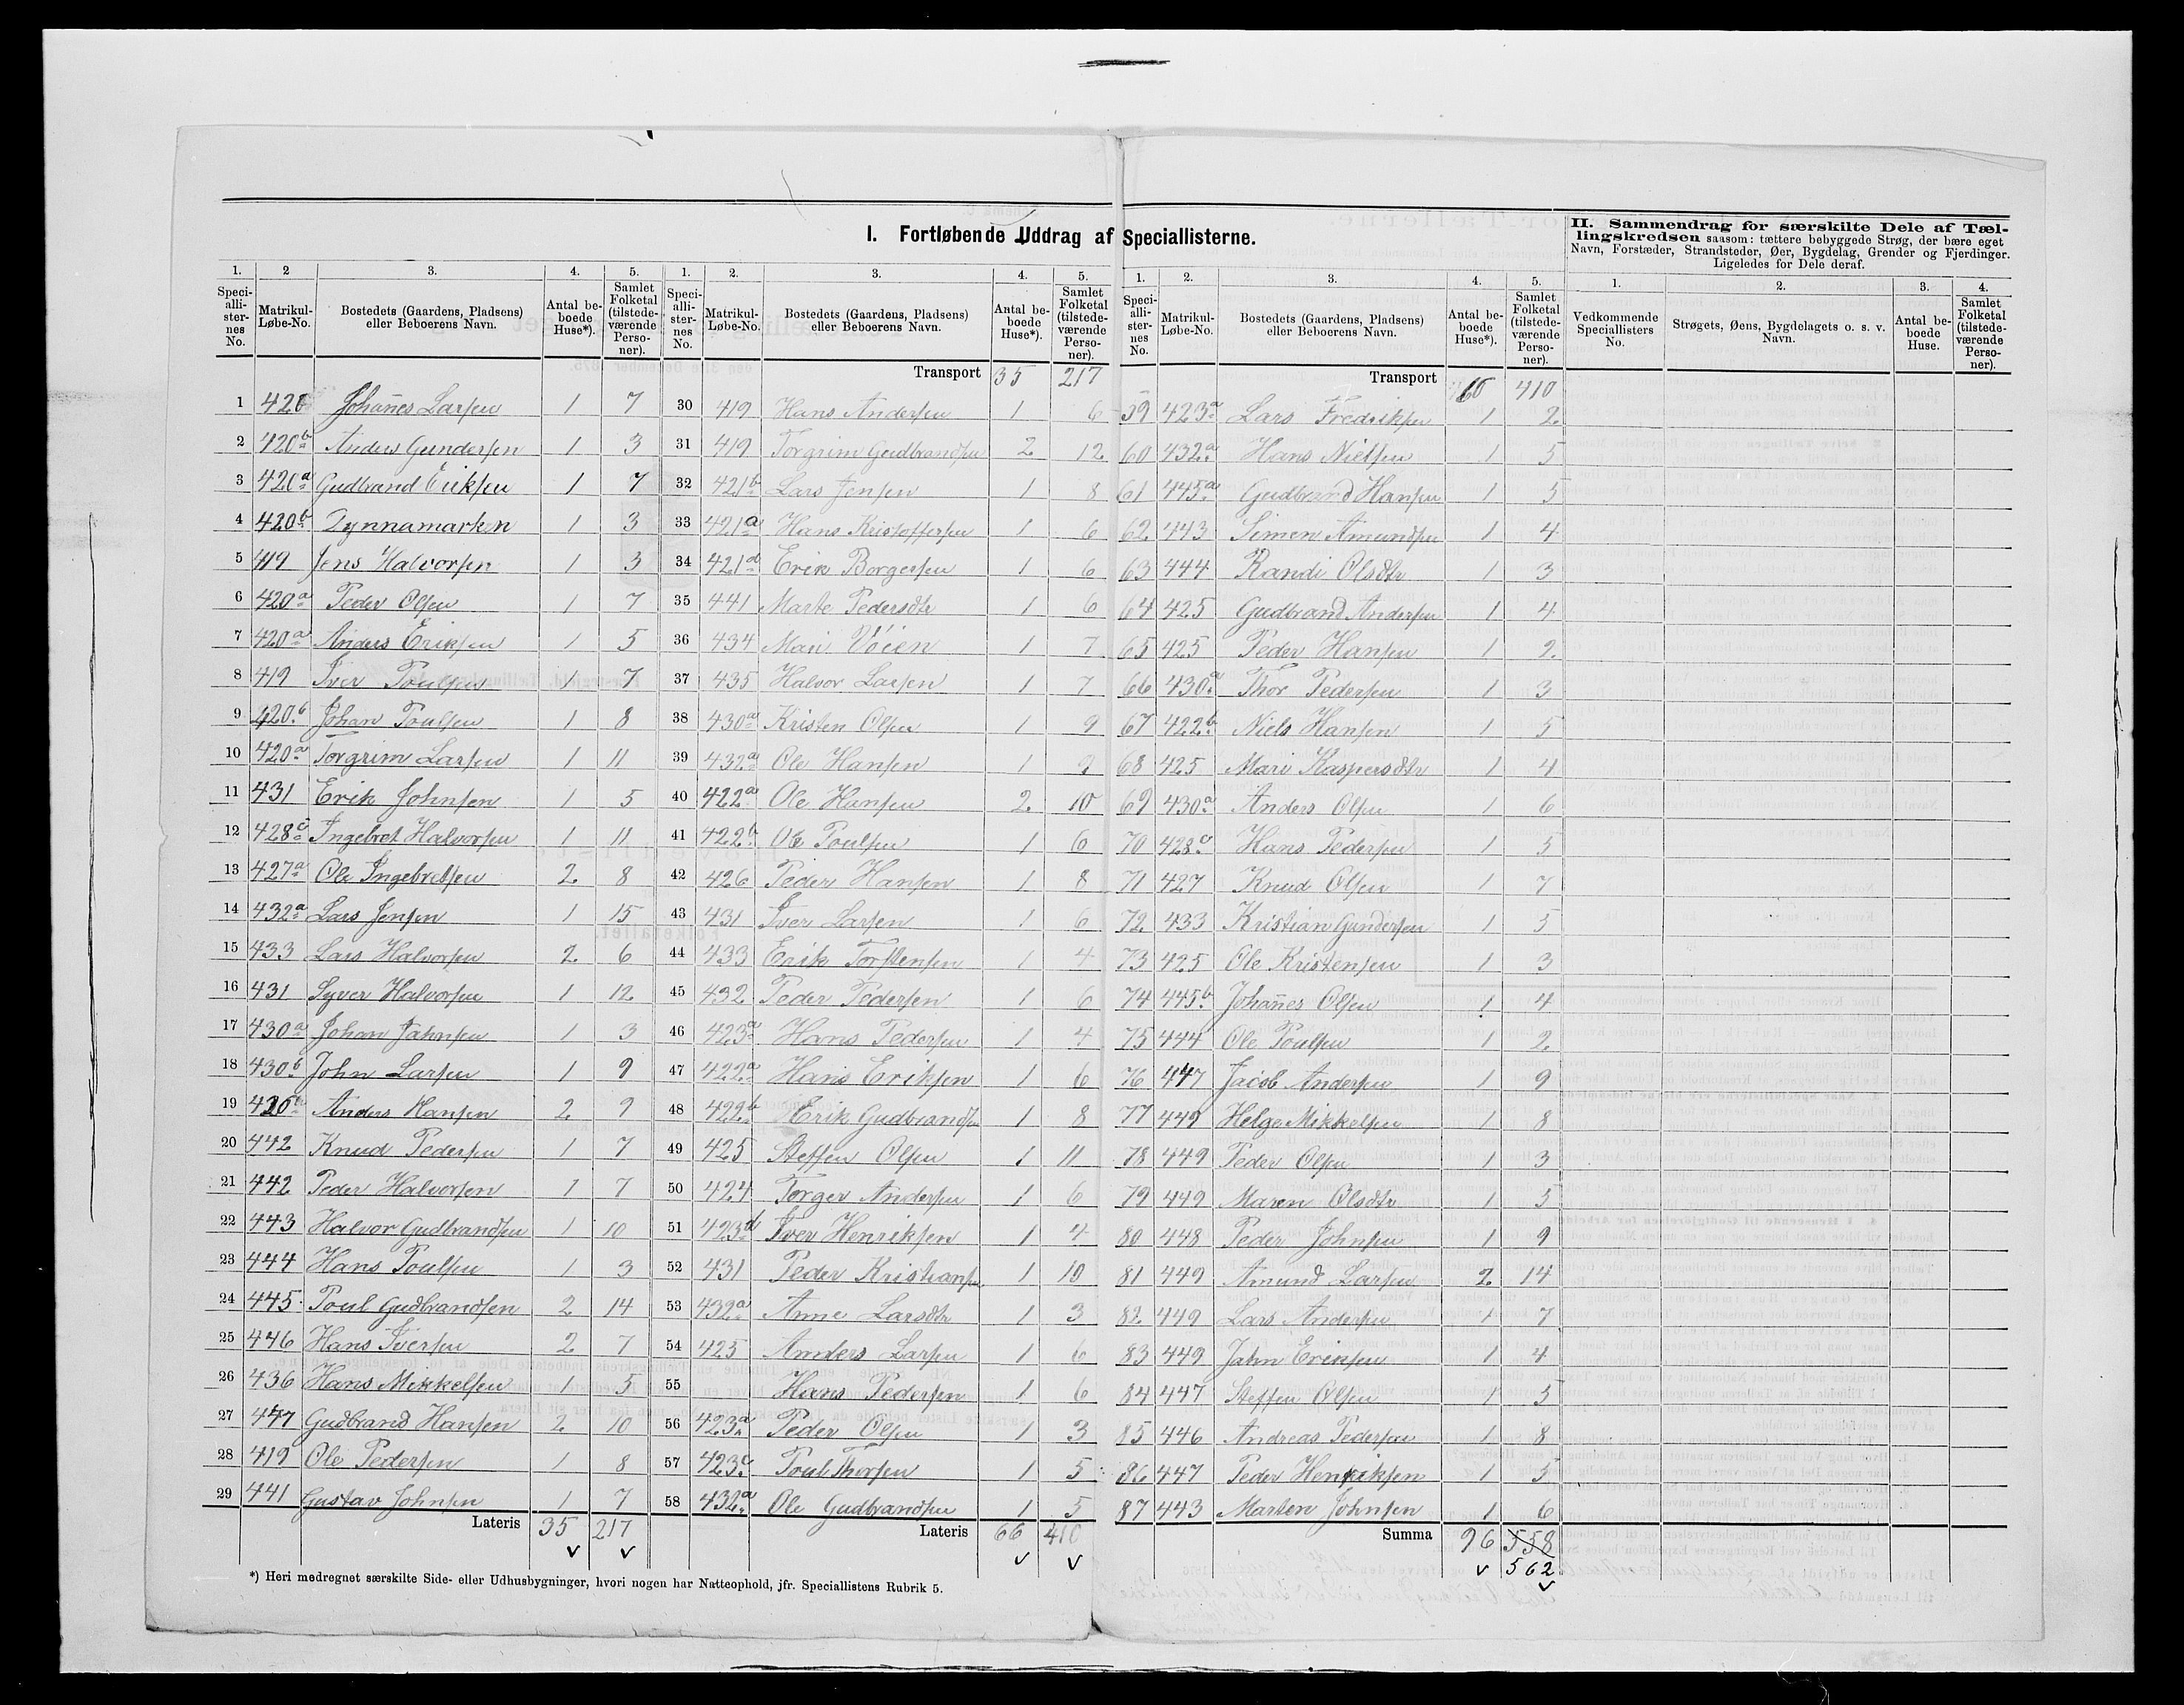 I. Fortløbende Uddrag af Speciallisterne.
II. Sammendrag for særskilte Dele af Tæl-
lingskredsen saasom: tættere bebyggede Strøg, der bære eget
Navn, Forstæder, Strandsteder, Øer, Bygdelag, Grender og Fjerdinger.
Ligeledes for Dele deraf.
1. 2 3. 4. 5.
Speci-alli-ster-nes No. Matrikul-Løbe-No. Bostedets (Gaardens, Pladsens) eller Beboerens Navn. Antal be-boede Huse*). Samlet Folketal (tilstede-værende Perso-ner).
1 420 Johañes Larsen 1 7
2 420b Anders Gundersen 1 3
3 420a Gudbrand Eriksen 1 7
4 420b Dynnamarken 1 3
5 419 Jens Halvorsen 1 3
6 420a Peder Olsen 1 7
7 420a Anders Eriksen 1 5
8 419 Iver Poulsen 1 7
9 420b Johan Poulsen 1 8
10 420a Torgrim Larsen 1 11
11 431 Erik Johnsen 1 5
12 428c Ingebret Halvorsen 1 11
13 427a Ole Ingebretsen 2 8
14 432a Lars Jensen 1 15
15 433 Lars Halvorsen 2 6
16 431 Syver Halvorsen 1 12
17 430a Johan Jahnsen 1 3
18 430b John Larsen 1 9
19 420 Anders Hansen 2 9
20 442 Knud Pedersen 1 7
21 442 Peder Halvorsen 1 7
22 443 Halvor Gudbrandsen 1 10
23 444 Hans Poulsen 1 3
24 445 Poul Gudbrandsen 2 14
25 446 Hans Iversen 2 7
26 436 Hans Mikkelsen 1 5
27 447 Gudbrand Hansen 2 10
28 419 Ole Pedersen 1 8
29 441 Gustav Johnsen 1 7
Lateris 35 217
1. 2. 3. 4. 5.
Speci-alli-ster-nes No. Matrikul-Løbe-No. Bostedets (Gaardens, Pladsens) eller Beboerens Navn. Antal be-boede Huse*). Samlet Folketal (tilstede-værende Perso-ner).
Transport 35 217
30 419 Hans Andersen 1 6
31 419 Torgrim Gudbrandsen 2 12
32 421b Lars Jensen 1 8
33 421a Hans Kristoffersen 1 6
34 421d Erik Borgersen 1 6
35 441 Marte Pedersdtr 1 6
36 434 Mari Vöien 1 7
37 435 Halvor Larsen 1 7
38 430a Kristen Olsen 1 9
39 432a Ole Hansen 1 2
40 422a Ole Hansen 2 10
41 422b Ole Poulsen 1 6
42 426 Peder Hansen 1 8
43 431 Iver Larsen 1 6
44 433 Erik Torstensen 1 4
45 432 Peder Pedersen 1 6
46 423a Hans Pedersen 1 4
47 422a Hans Eriksen 1 6
48 422b Erik Gudbrandsen 1 8
49 425 Steffen Olsen 1 11
50 424 Torger Andersen 1 6
51 423d Iver Henriksen 1 4
52 431 Peder Kristiansen 1 10
53 432a Anne Larsdtr 1 3
54 425 Anders Larsen 1 6
55 Hans Pedersen 1 6
56 423a Peder Olsen 1 3
57 423c Poul Thorsen 1 5
58 432a Ole Gudbrandsen 1 5
Lateris 66 410
1. 2. 3. 4. 5.
Speci-alli-ster-nes No. Matrikul-Løbe-No. Bostedets (Gaardens, Pladsens) eller Beboerens Navn. Antal be-boede Huse*). Samlet Folketal (tilstede-værende Perso-ner).
Transport 410
59 423a Lars Fredriksen 1 2
60 432a Hans Nielsen 1 5
61 445a Gudbrand Hansen 1 5
62 443 Simen Amundsen 1 4
63 444 Randi Olsdtr 1 3
64 425 Gudbrand Andersen 1 4
65 425 Peder Hansen 1 2
66 430a Thor Pedersen 1 3
67 422b Niels Hansen 1 5
68 425 Mari Kaspersdtr 1 4
69 430a Anders Olsen 1 6
70 428c Hans Pedersen 1 5
71 427 Knud Olsen 1 7
72 433 Kristian Gundersen 1 5
73 425 Ole Kristensen 1 3
74 445b Johañes Olsen 1 4
75 444 Ole Poulsen 1 2
76 447 Jacob Andersen 1 9
77 449 Helge Mikkelsen 1 8
78 449 Peder Olsen 1 3
79 449 Maren Olsdtr 1 5
80 448 Peder Johnsen 1 9
81 449 Amund Larsen 2 14
82 449 Lars Andersen 1 7
83 449 Jahn Eriksen 1 4
84 447 Steffen Olsen 1 5
85 446 Andreas Pedersen 1 8
86 447 Peder Henriksen 1 5
87 443 Marten Johnsen 1 6
Summa 96 558
562
1. 2. 3. 4.
Vedkommende Speciallisters No. Strøgets, Øens, Bygdelagets o. s. v. Navn. Antal be-boede Huse. Samlet Folketal (tilstede-værende Perso-ner).
*) Heri medregnet særskilte Side- eller Udhusbygninger, hvori nogen har Natteophold, jfr. Speciallistens Rubrik 5.